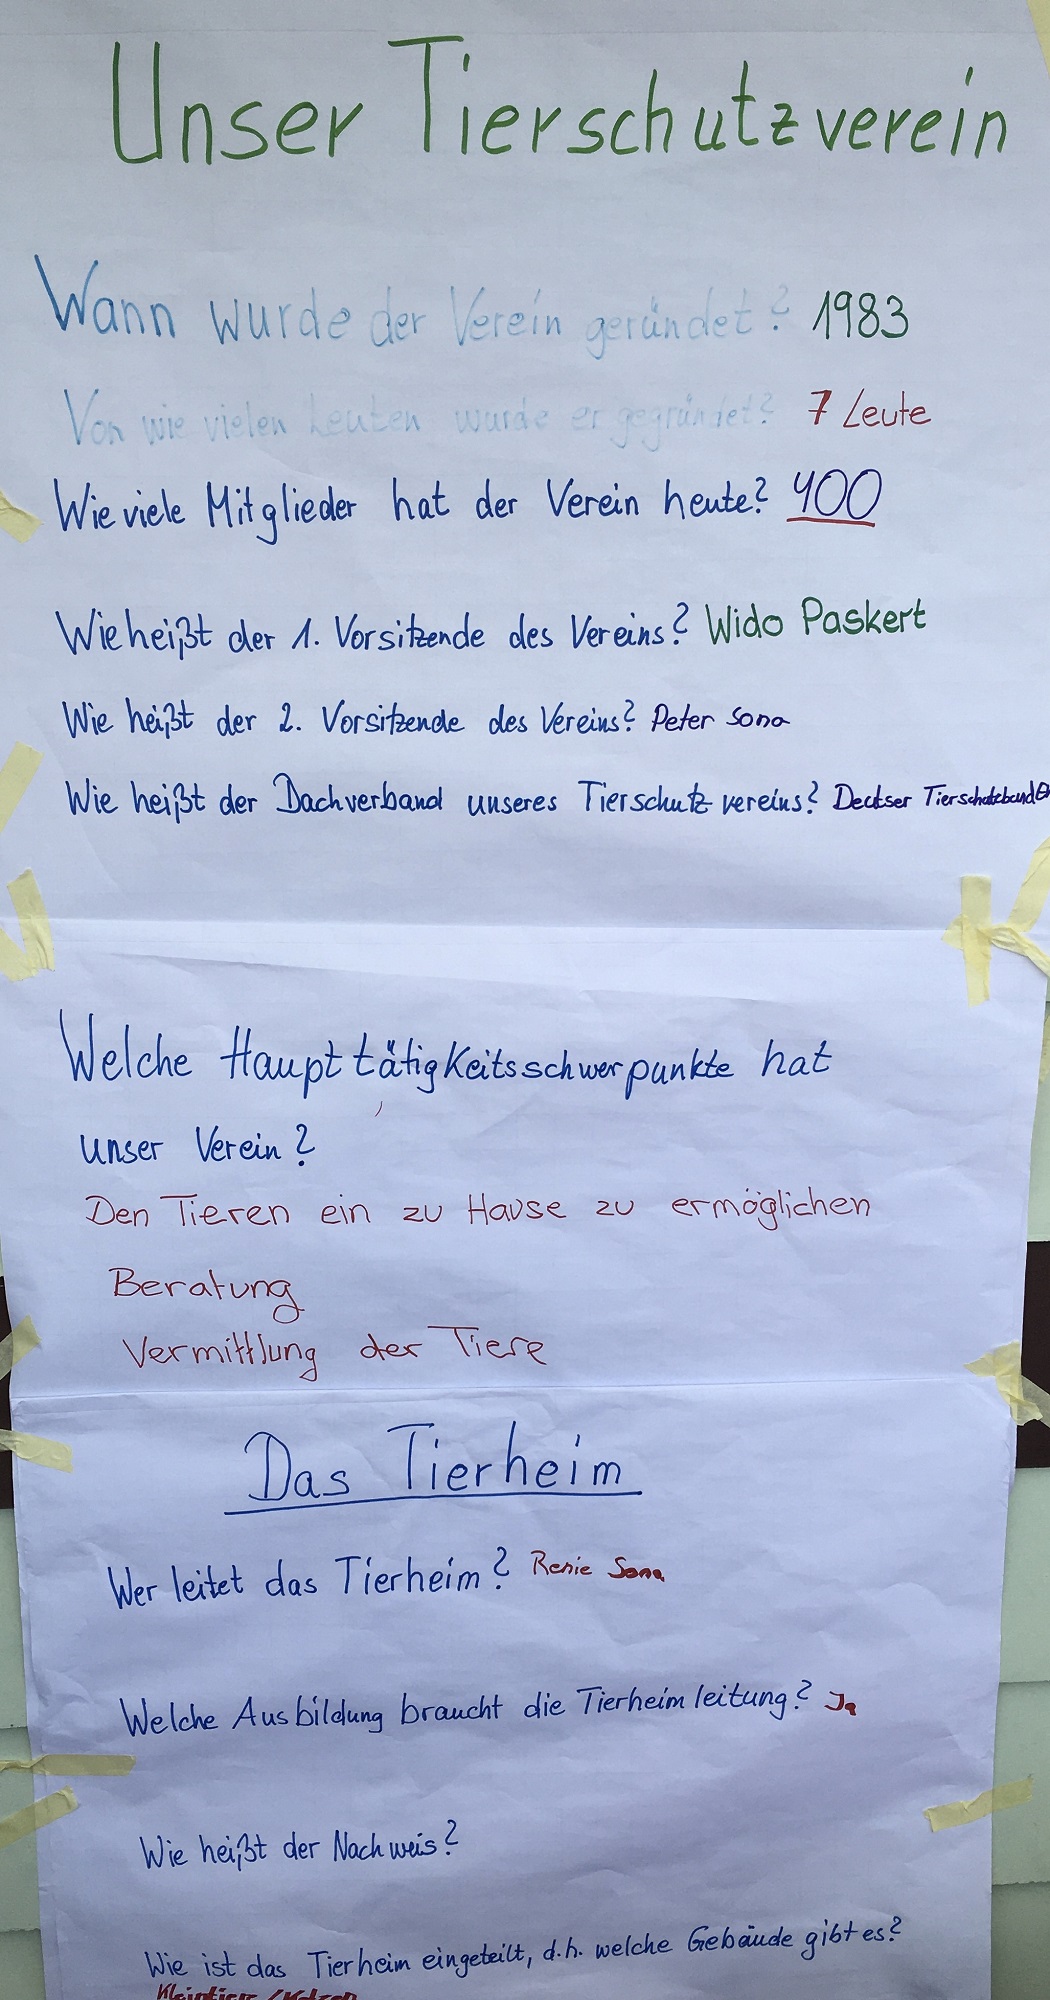 Unser Tierschutzverein
Wann wurde der Verein geründet? 1983
Von wie vielen Leuten wurde er gegründet? 7 Leute
Wie viele Mitglieder hat der Verein heute? 400
Wie heißt der 1. Vorsitzende des Vereins? Wido Paskert
Wie heißt der 2. Vorsitzende des Vereins? Peter Sona
Wie heißt der Dachverband unseres Tierschutzvereins? Deutser
Welche Haupttätigkeitsschwerpunkte hat
unser Verein?
Den Tieren ein zu Hause zu ermöglichen
Beratung
Vermittlung der Tiere
Das Tierheim
Wer leitet das Tierheim? Renie Sona
Welche Ausbildung braucht die Tierheimleitung? Ja
Wie heißt der Nachweis?
Wie ist das Tierheim eingeteilt, d.h. welche Gebäude gibt es?